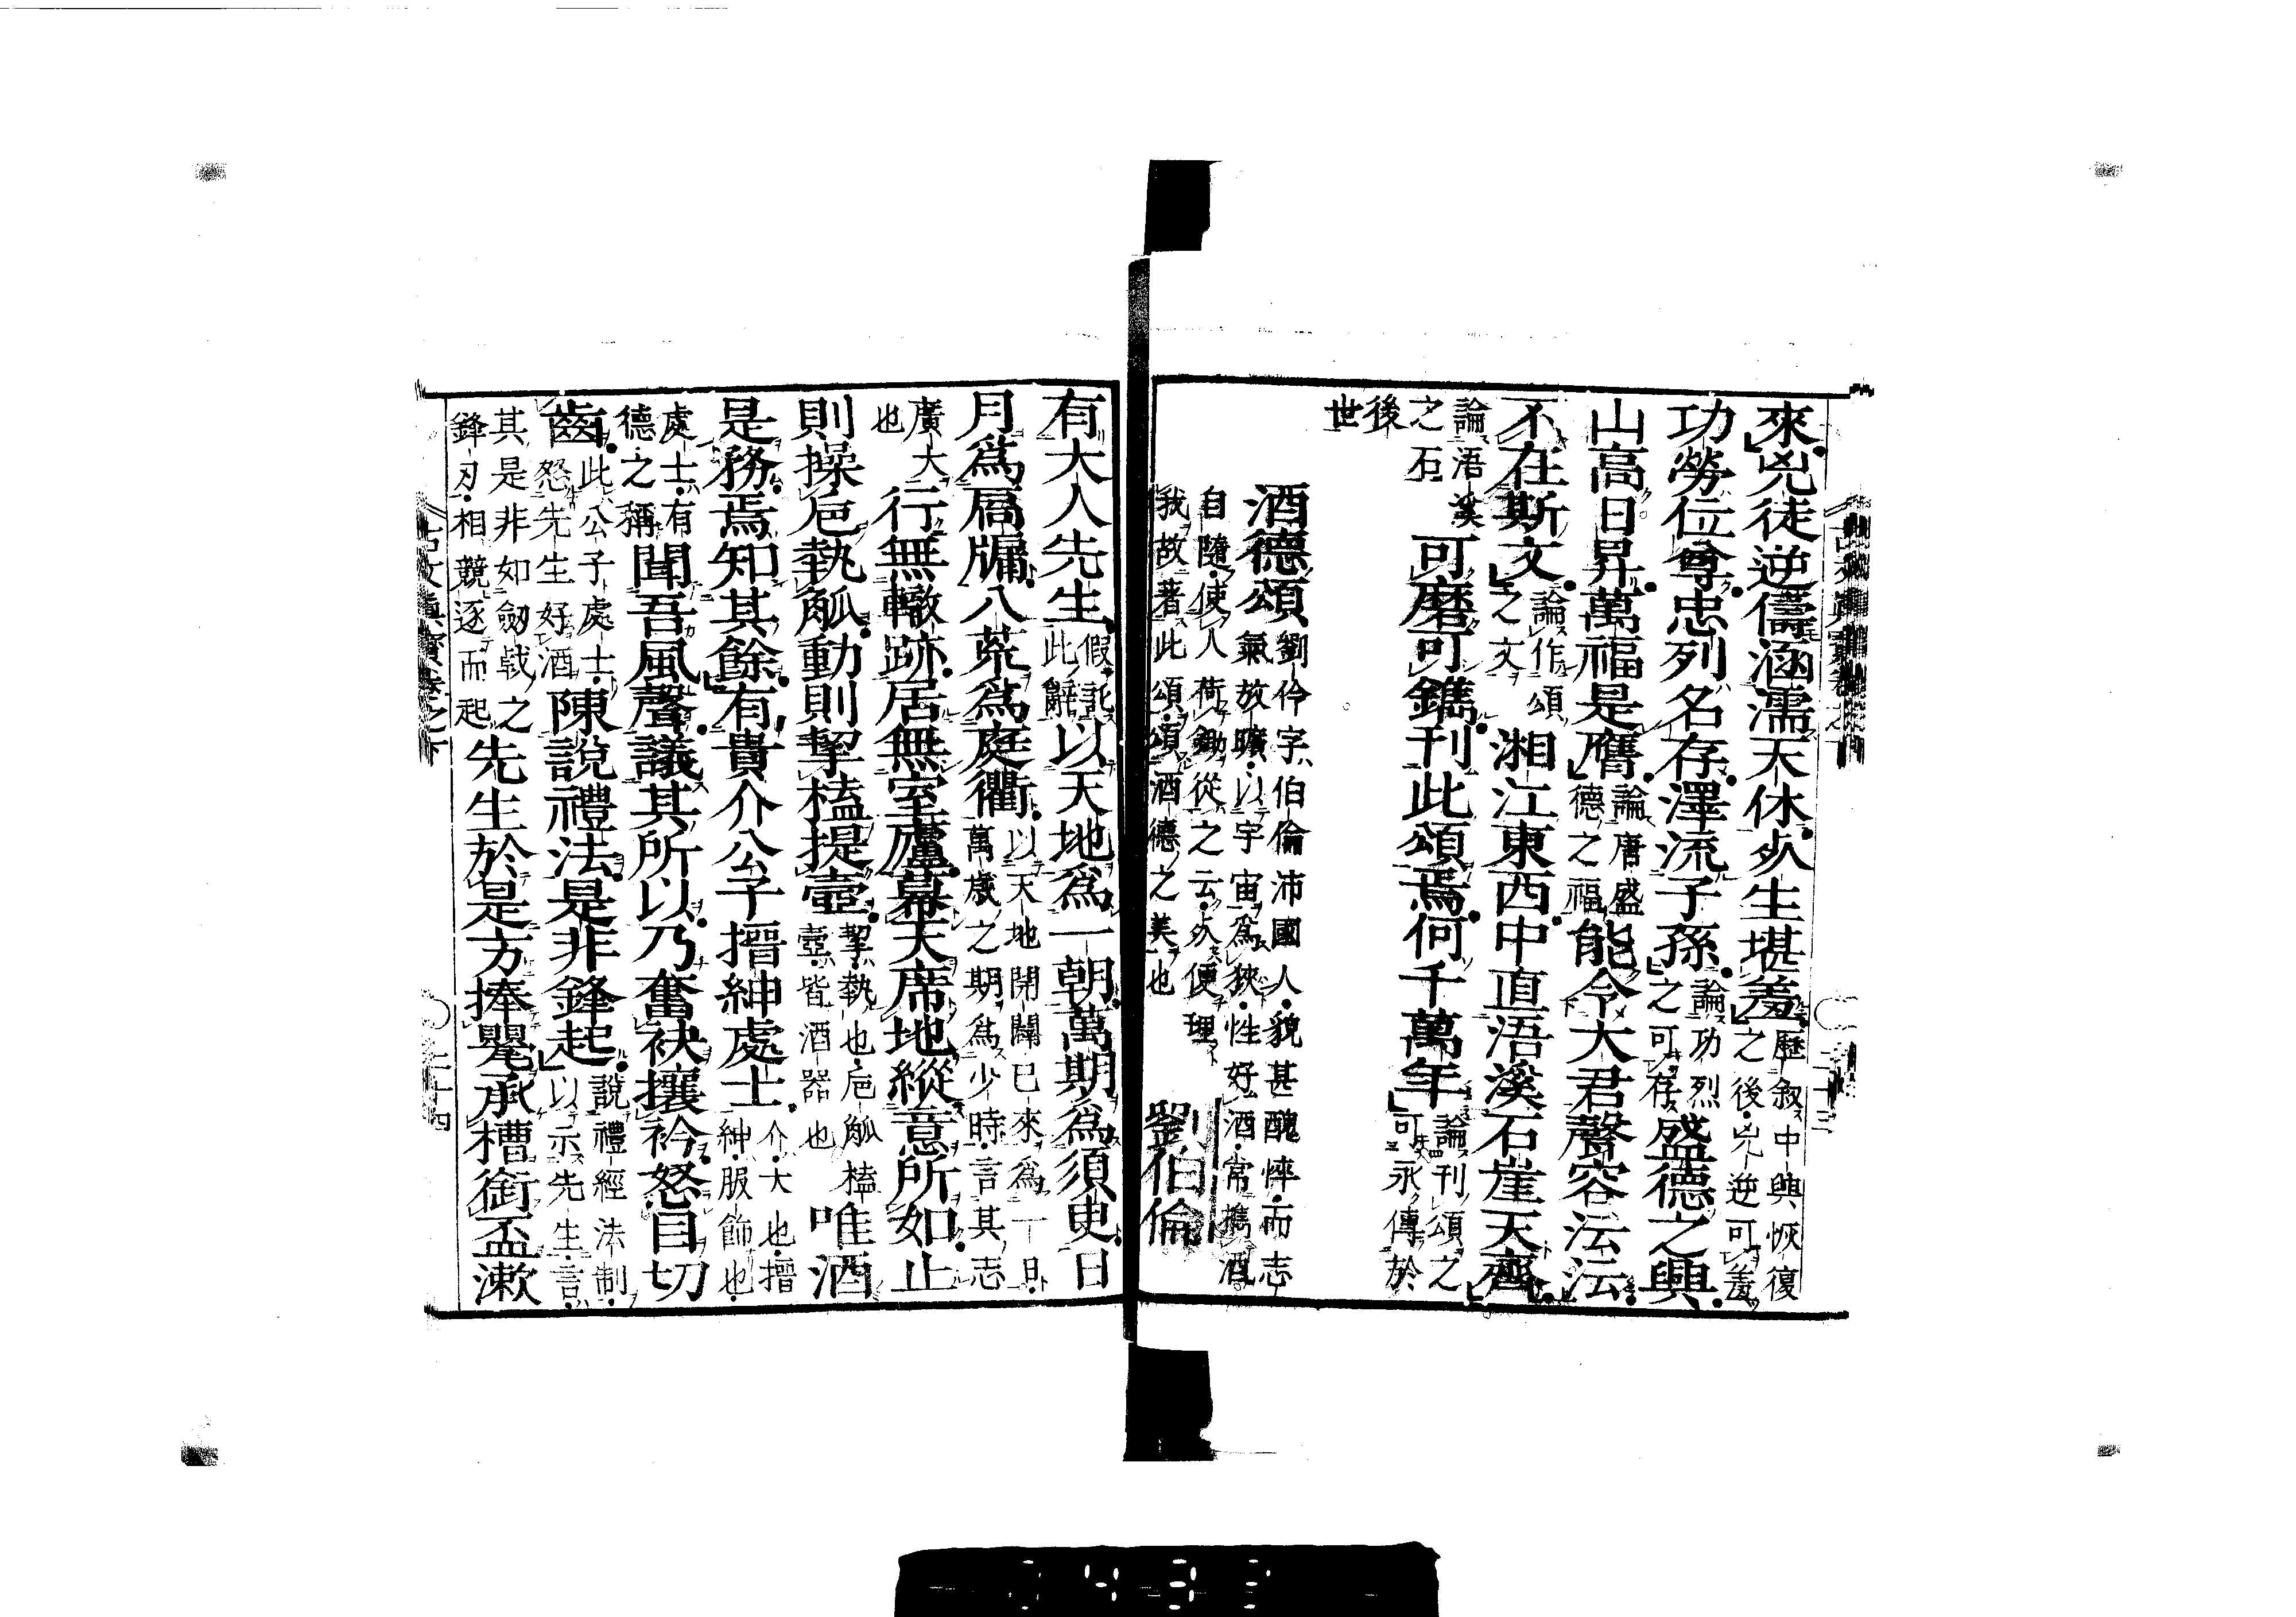 來兇徒逆儔涵濡天休死生堪羞歷叙中興恢復之後兇逆可羞
功勞位尊忠列名存澤流子孫論功烈之可存盛德之興
山高日昇萬福是膺論唐盛德之福能令大君聲容沄沄
不在斯文論作頌之文湘江東西中直浯溪石崖天齊
論浯溪之石可磨可鐫刊此頌焉何千萬年論刊頌之可永傳於
後世
酒德頌劉伶字伯倫沛國人貌甚醜悴而志氣放曠以宇宙爲狹性好酒常攜酒
自隨使人荷鋤從之云死便埋我故著此頌頌酒德之美也
劉伯倫
有大人先生假託此辭以天地爲一朝萬期爲須臾日
月爲扃牖八荒爲庭衢以天地開闢已來爲一日萬歲之期爲少時言其志
廣大也行無轍跡居無室廬幕天席地縱意所如止
則操巵執觚動則挈榼提壺挈執也巵觚榼壺皆酒器也唯酒
是務焉知其餘有貴介公子搢紳處士介大也搢紳服飾也
處士有德之稱聞吾風聲議其所以乃奮袂攘衿怒目切
齒此公子處士怒先生好酒陳說禮法是非鋒起說禮經法制以示先生言
其是非如劒戟之鋒刃相競逐而起先生於是方捧甖承槽銜盃漱
古文真寶卷之下
二十四